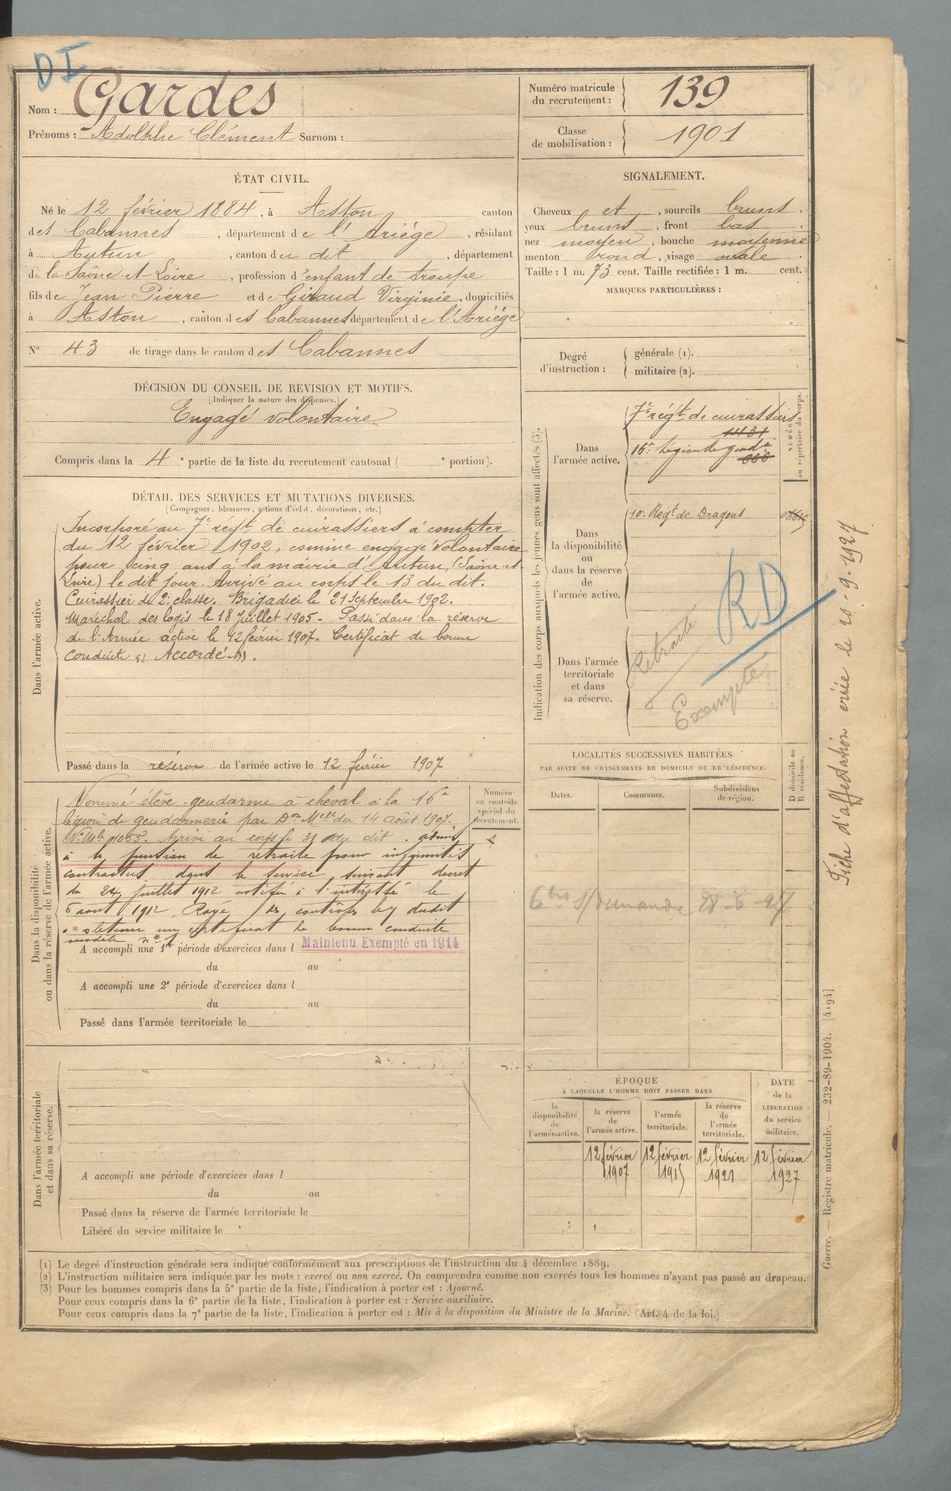 DI
Nom : Gardes
Prénoms : Adolphe Clément Surnom :
Numéro matricule du recrutement : 139
Classe de mobilisation : 1901
ÉTAT CIVIL.
Né le 12 février 1884, à Aston canton
des Cabannes, département de l'Ariège, résidant
à Autun, canton du dit, département
de la Saône et Loire, profession d'enfant de troupe
fils de Jean Pierre et de Giraud Virginie, domiciliés
à Aston, canton des Cabannes département de l'Ariège
N° 43 de tirage dans le canton des Cabannes
SIGNALEMENT.
Cheveux et, sourcils bruns.
yeux bruns, front bas
nez moyen, bouche moyenne
menton rond, visage ovale
Taille : 1 m. 73 cent. Taille rectifiée : 1 m. cent.
MARQUES PARTICULIÈRES :
Degré d'instruction :
générale (1).
militaire (2).
DÉCISION DU CONSEIL DE REVISION ET MOTIFS.
(Indiquer la nature des dispenses.)
Engagé volontaire
Compris dans la 4e partie de la liste du recrutement cantonal ( e portion).
DÉTAIL DES SERVICES ET MUTATIONS DIVERSES.
(Campagnes, blessures, actions d'éclat, décorations, etc.)
Dans l'armée active.
Incorporé au 7e régt de cuirassiers à compter
du 12 février 1902, comme engagé volontaire
pour cinq ans à la mairie d'Autun, (Saône et
Loire) le dit jour. Arrivé au corps le 13 du dit.
Cuirassier de 2e classe. Brigadier le 21 Septembre 1902.
Maréchal des logis le 18 Juillet 1905. Passé dans la réserve
de l'Armée active le 12 février 1907. Certificat de bonne
conduite Accordé.
Passé dans la réserve de l'armée active le 12 février 1907
Indication des corps auxquels les jeunes gens sont affectés (3).
NUMÉRO au répertoire du corps.
Dans l'armée active.
7e régt de cuirassiers
16e Légion de gendie
Dans la disponibilité ou dans la réserve de l'armée active.
10e Regt de Dragons
Dans l'armée territoriale et dans sa réserve.
Retraité
Exempté
RD
Fiche d'affectation criée le 20.9.1927
Dans la disponibilité ou dans la réserve de l'armée active.
Nommé élève gendarme à cheval à la 16e
légion de gendarmerie par Don Mlle du 14 août 1907.
Arrivé au corps le 31 dit admis
à la pension de retraite pour infirmités
contractées dans le service suivant décret
du 24 juillet 1912 notifié à l'intéressé le
6 août 1912. Rayé des contrôles le dudit
a obtenu un certificat de bonne conduite
modèle n° 1
Numéro au contrôle spécial du recrutement.
A accompli une 1re période d'exercices dans l Maintenu Exempté en 1914
du au
A accompli une 2e période d'exercices dans l
du au
Passé dans l'armée territoriale le
LOCALITÉS SUCCESSIVES HABITÉES
PAR SUITE DE CHANGEMENTS DE DOMICILE OU DE RÉSIDENCE.
Dates.
Communes.
Subdivisions de région.
D domicile ou R résidence.
Dans l'armée territoriale et dans sa réserve.
A accompli une période d'exercices dans l
du au
Passé dans la réserve de l'armée territoriale le
Libéré du service militaire le
ÉPOQUE
À LAQUELLE L'HOMME DOIT PASSER DANS
la disponibilité de l'armée active.
la réserve de l'armée active.
l'armée territoriale.
la réserve de l'armée territoriale.
DATE de la LIBÉRATION du service militaire.
12 février 1907
12 février 1915
12 février 1921
12 février 1927
Guerre. — Registre matricule. — 232-89-1904. [4194]
(1) Le degré d'instruction générale sera indiqué conformément aux prescriptions de l'instruction du 4 décembre 1889.
(2) L'instruction militaire sera indiquée par les mots : exercé ou non exercé. On comprendra comme non exercés tous les hommes n'ayant pas passé au drapeau.
(3) Pour les hommes compris dans la 5e partie de la liste, l'indication à porter est : Ajourné.
Pour ceux compris dans la 6e partie de la liste, l'indication à porter est : Service auxiliaire.
Pour ceux compris dans la 7e partie de la liste, l'indication à porter est : Mis à la disposition du Ministre de la Marine. (Art. 4 de la loi.)